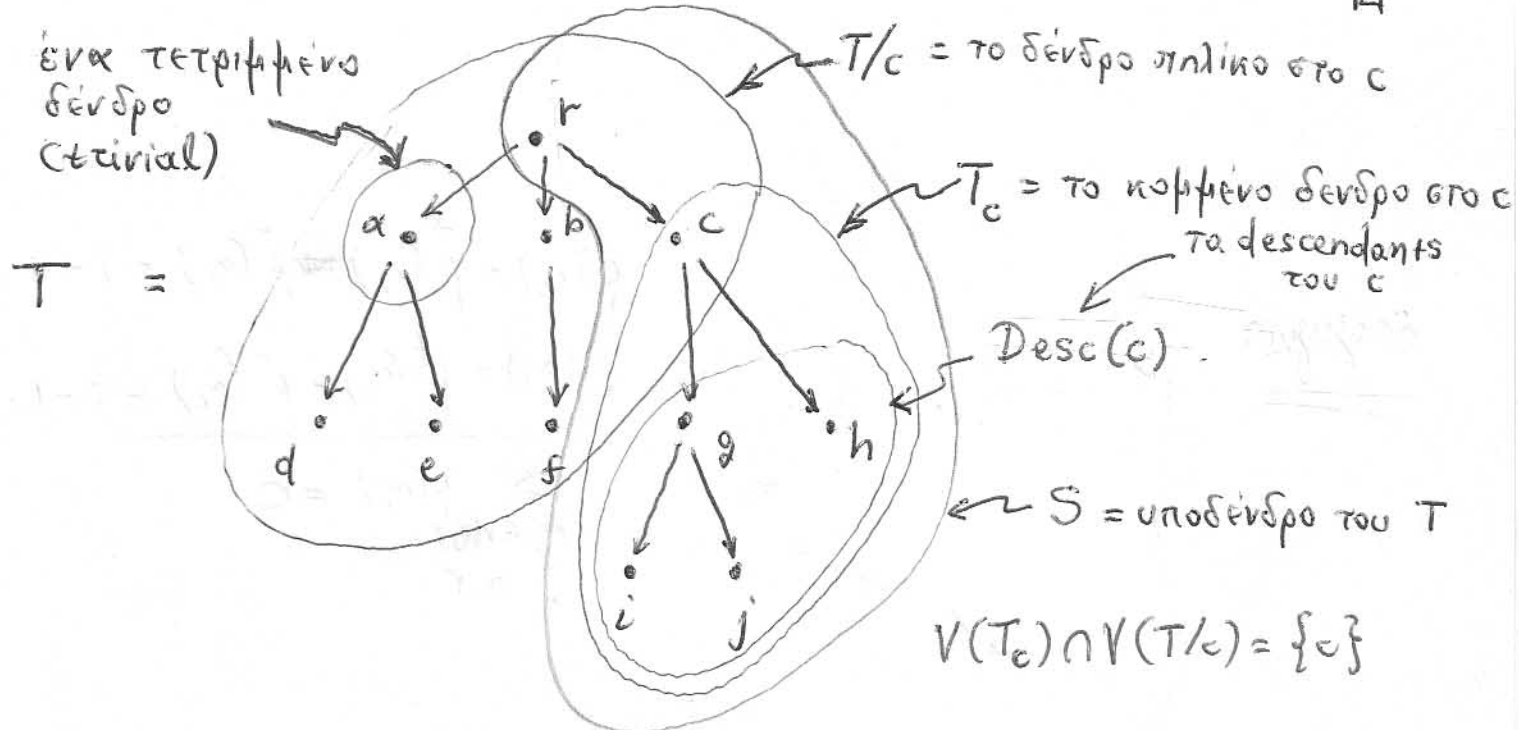 ένα τετριμμένο
δένδρο
(trivial)
T/c = το δένδρο πηλίκο στο c
r
T_c = το κομμένο δενδρο στο c
a
b
c
τα descendants
του c
T =
Desc(c).
d
e
f
g
h
S = υποδένδρο του T
i
j
V(T_c) ∩ V(T/c) = {c}